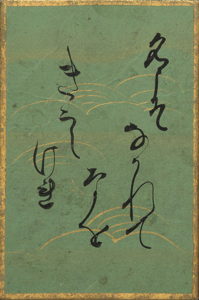 名こそ
なかれて
なを
きこえ
けれ